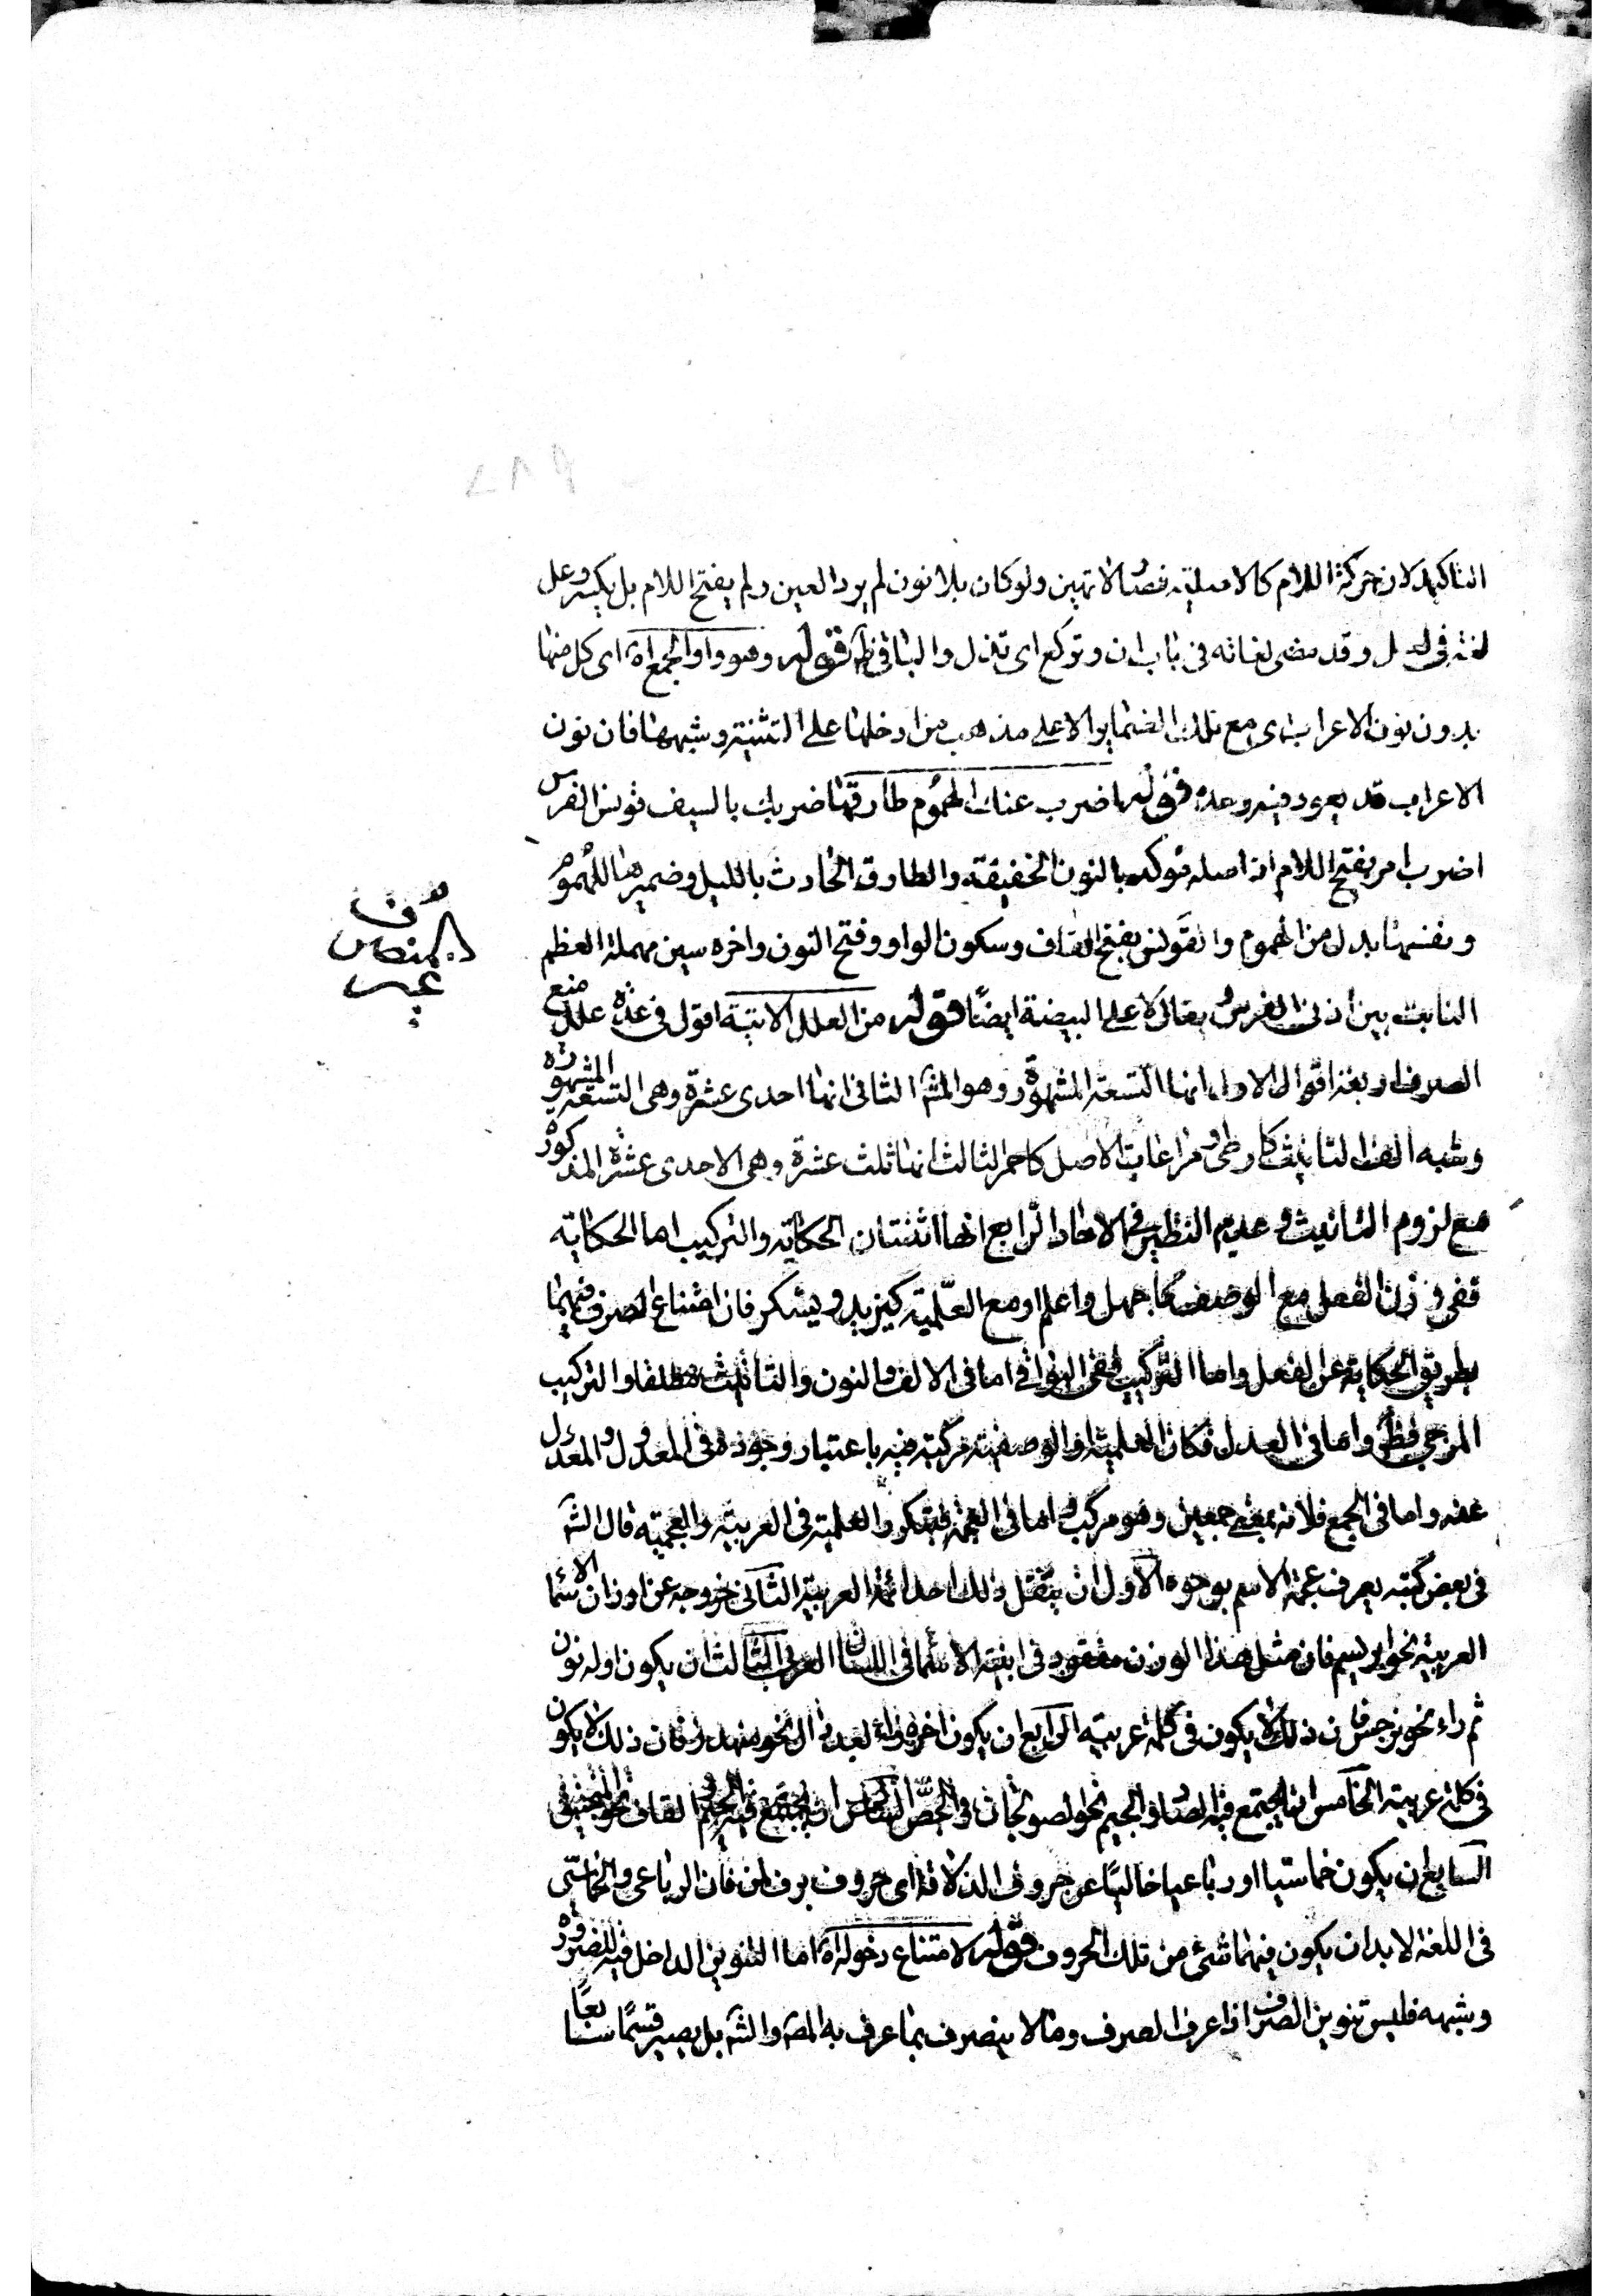 التاكيد لان حركة اللام كالاصلية فصار لا تهين ولو كان بلا نون لم يرد العين ولم يفتح اللام بل يكسر وعل
لغة فى لعل وقد مضى لغاته فى باب ان وتركع اى تذل والباقى ظ قوله وهو واو الجمع اه اى كل منها
بدون نون الاعراب اى مع تلك الضماير الا على مذهب من ادخلها على التثنية وشبهها فان نون
الاعراب قد يعود فيه وعده قوله اضرب عنك الهموم طارقها ضربك بالسيف قونس الفرس
اضرب امر بفتح اللام اذ اصله موكد بالنون الخفيفة والطارق الحادث بالليل وضميرها للهموم
ونفسها بدل من الهموم والقونس بفتح القاف وسكون الواو وفتح النون واخره سين مهملة العظم
النابت بين اذنى الفرس يقال لاعلى البيضة ايضًا قوله من العلل الاتية اقول فى عدة علل منع
الصرف اربعة اقوال الاول انها التسعة المشهورة وهو المش الثانى انها احدى عشرة وهى التسعة المشهورة
وشبه الف التانيث كارطى ومراعات الاصل كاحمر الثالث انها ثلث عشرة وهى الاحدى عشرة المذكورة
مع لزوم التانيث وعدم النظير فى الاحاد الرابع انها اثنتان الحكاية والتركيب اما الحكاية
ففى وزن الفعل مع الوصف كاجهل واعلم او مع العلمية كيزيد ويشكر فان امتناع الصرف فيهما
بطريق الحكاية عن الفعل واما التركيب ففى البواقى اما فى الالف والنون والتانيث مطلقا والتركيب
المزجى فظ واما فى العدل فكان العلمية او الوصفية مركبة فيه باعتبار وجوده فى المعدول والمعدول
عنه واما فى الجمع فلانه بمعنى جمعين وهو مركب واما فى العجمة فبتكرر العلمية فى العربية والعجمية قال الش
فى بعض كتبه يعرف عجمة الاسم بوجوه الاول ان ينقل ذلك احد ائمة العربية الثانى خروجه عن اوزان الاسماء
العربية نحو ابريسم فان مثل هذا الوزن مفقود فى ابنية الاسماء فى اللسان العربى الثالث ان يكون اوله نون
ثم راء نحو نرجس فان ذلك لا يكون فى كلمة عربية الرابع ان يكون اخره زاء بعد دال نحو مهندز فان ذلك لا يكون
فى كلمة عربية الخامس ان يجتمع فيه الصاد والجيم نحو لصولجان والجص السادس ان يجتمع فيه الجيم والقاف نحو المنجنيق
السابع ان يكون خماسيا او رباعيا خاليًا عن حروف الذلاقة اى حروف برف لمن فان الرباعى والخماسى
فى اللغة لا بد ان يكون فيهما شئ من تلك الحروف قوله لامتناع دخوله اه اما التنوين الداخل فيه للضرورة
وشبهه فليس تنوين الصرف اذا عرف الصرف وما لا ينصرف بما عرف به المص والش بل يصير قسمًا سابعًا